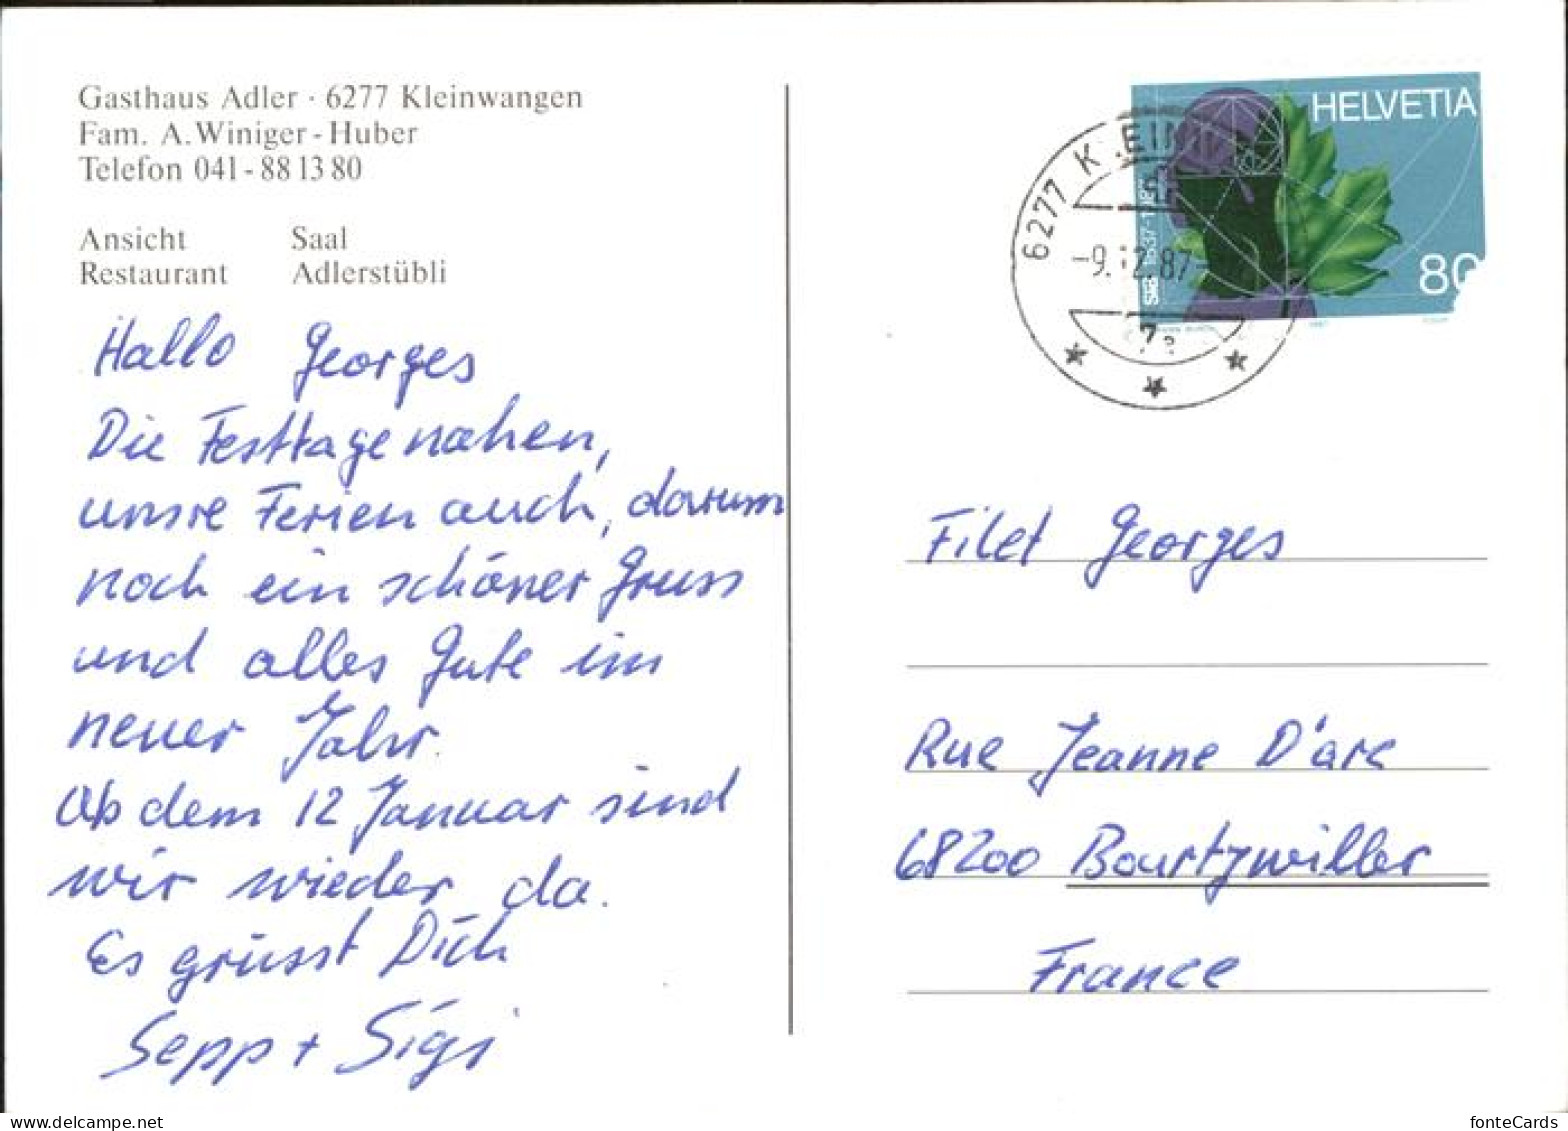 Gasthaus Adler · 6277 Kleinwangen
Fam. A. Winiger - Huber
Telefon 041 - 88 13 80
Ansicht Saal
Restaurant Adlerstübli
Hallo Georges
Die Festtage nahen,
unsre Ferien auch, darum
noch ein schöner Gruss
und alles Gute im
neuer Jahr.
Ab dem 12 Januar sind
wir wieder da.
Es grüsst Dich
Sepp + Sigi
HELVETIA
80
6277
-9.12.87-
Filet Georges
Rue Jeanne D'arc
68200 Bourtzwiller
France
delcampe.net
fonteCards